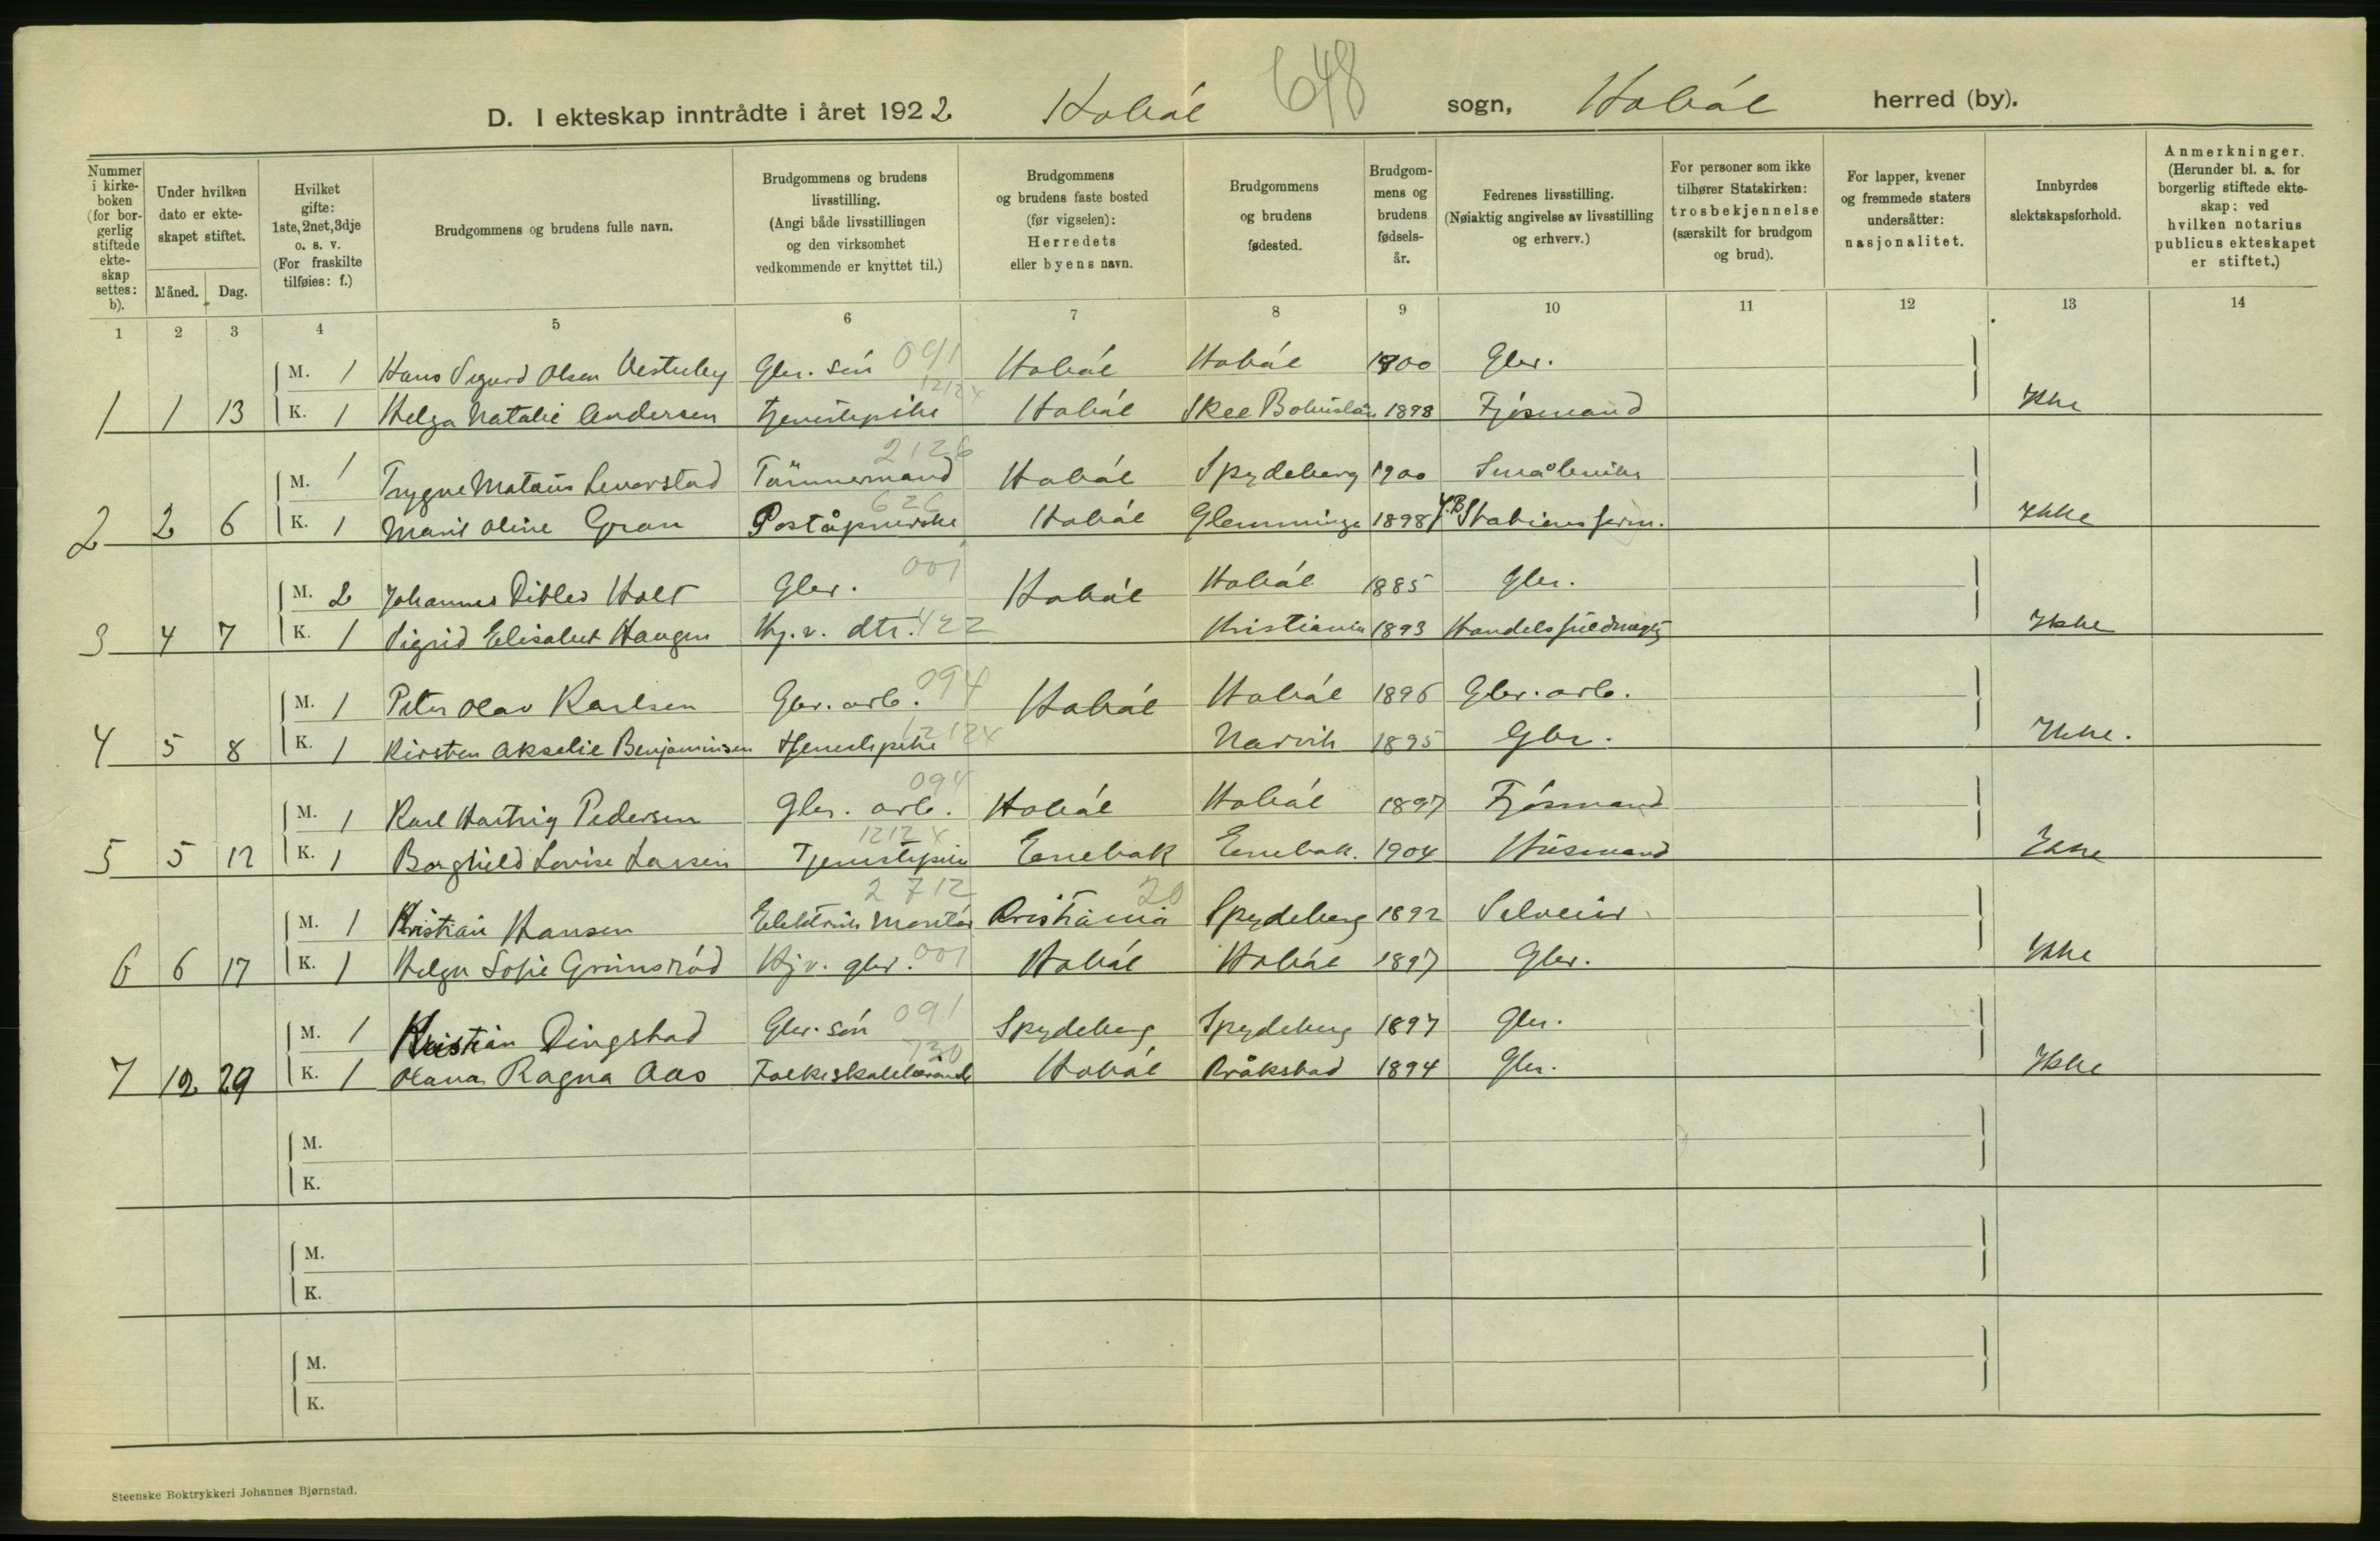 648
D. I ekteskap inntrådte i året 1922 Hobøl sogn, Hobøl herred (by).
Nummer i kirke-boken (for bor-gerlig stiftede ekte-skap settes: b).
Under hvilken dato er ekte-skapet stiftet.
Måned. Dag.
Hvilket gifte: 1ste, 2net, 3dje o. s. v. (For fraskilte tilføies: f.)
Brudgommens og brudens fulle navn.
Brudgommens og brudens livsstilling. (Angi både livsstillingen og den virksomhet vedkommende er knyttet til.)
Brudgommens og brudens faste bosted (før vigselen): Herredets eller byens navn.
Brudgommens og brudens fødested.
Brudgom-mens og brudens fødsels-år.
Fedrenes livsstilling. (Nøiaktig angivelse av livsstilling og erhverv.)
For personer som ikke tilhører Statskirken: trosbekjennelse (særskilt for brudgom og brud).
For lapper, kvener og fremmede staters undersåtter: nasjonalitet.
Innbyrdes slektskapsforhold.
Anmerkninger. (Herunder bl. a. for borgerlig stiftede ekte-skap: ved hvilken notarius publicus ekteskapet er stiftet.)
1 2 3 4 5 6 7 8 9 10 11 12 13 14
M. 1 Hans Sigurd Olsen Vesterby Gbr. søn 091 Hobøl Hobøl 1900 Gbr.
1 1 13 K. 1 Helga Natalie Andersen Tjenestepike 1212x Hobøl Skee Bohuslän 1898 Fjøsmand Ikke
M. 1 Trygve Mataus Levorstad Tömmermand 2126 Hobøl Spydeberg 1900 Småbruker
2 2 6 K. 1 Marie Oline Gran Poståpnerske 626 Hobøl Glemminge 1898 J.B. Stationsform. Ikke
M. 2 Johannes Ditlev Holt Gbr. 001 Hobøl Hobøl 1885 Gbr.
3 4 7 K. 1 Sigrid Elisabet Haugen Hj. v. dtr. 422 Kristiania 1893 Handelsfuldmægtig Ikke
M. 1 Peter Olav Karlsen Gbr. arb. 094 Hobøl Hobøl 1896 Gbr. arb.
4 5 8 K. 1 Kirsten Akselie Benjaminsen Tjenestepike 1212x Narvik 1895 Gbr. Ikke.
M. 1 Karl Hartvig Pedersen Gbr. arb. 094 Hobøl Hobøl 1897 Fjøsmand
5 5 12 K. 1 Borghild Lovise Larsen Tjenestepike 1212x Enebak Enebak. 1904 Husmand Ikke
M. 1 Kristian Hansen Elektrisk Montør 2 712 Kristiania 20 Spydeberg 1892 Selveier
6 6 17 K. 1 Helga Sofie Grimsrød Hj v. gbr. 001 Hobøl Hobøl 1897 Gbr. Ikke
M. 1 Kristian Dingstad Gbr. søn 091 Spydeberg Spydeberg 1897 Gbr.
7 12 29 K. 1 Olava Ragna Aas Folkeskolelærerinde 730 Hobøl Kråkstad 1894 Gbr. Ikke
M.
K.
M.
K.
M.
K.
Steenske Boktrykkeri Johannes Bjørnstad.